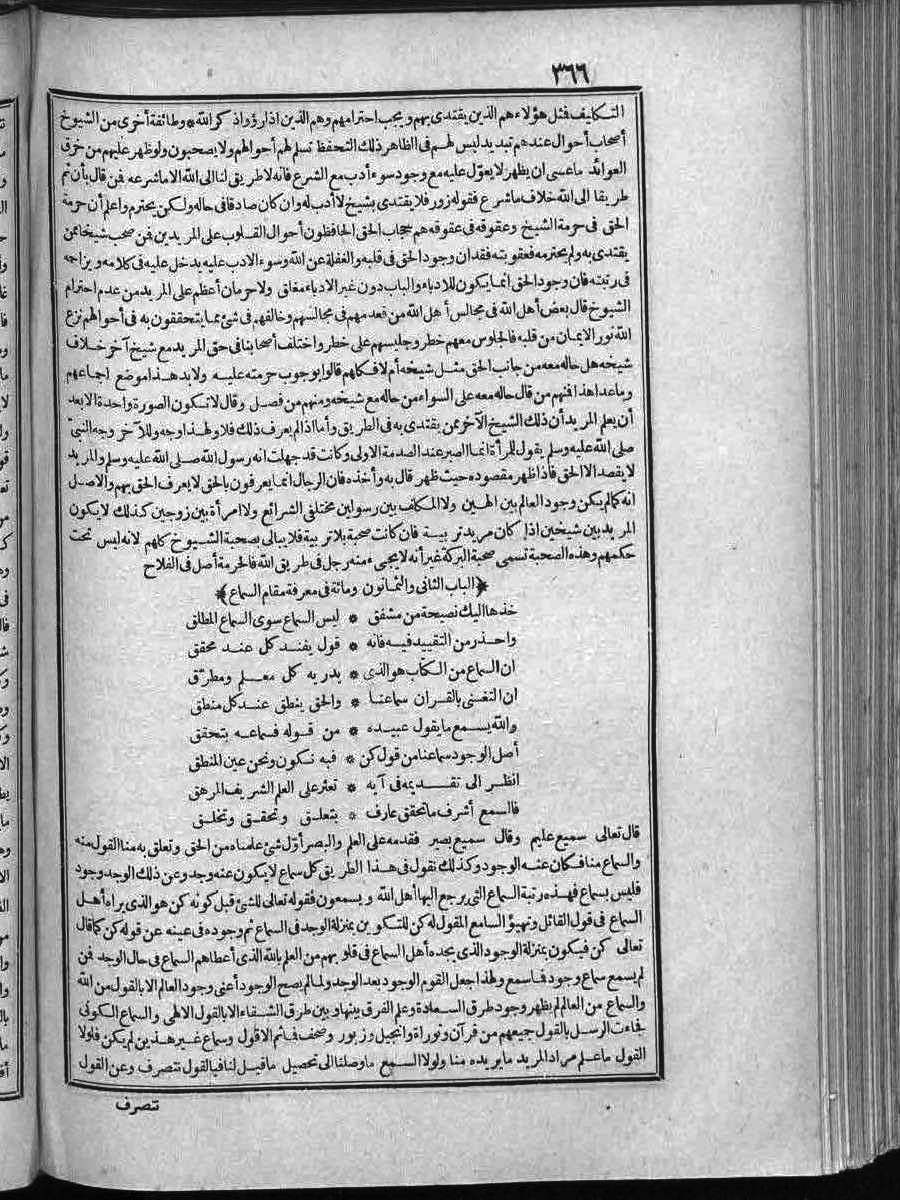 ٣٦٦
التكاليف فمثل هؤلاء هم الذين يقتدى بهم ويجب احترامهم وهم الذين اذا رؤا ذكر الله * وطائفة أخرى من الشيوخ
أصحاب أحوال عندهم تبديد ليس لهم فى الظاهر ذلك التحفظ تسلم لهم أحوالهم ولا يصحبون ولو ظهر عليهم من خرق
العوائد ما عسى ان يظهر لا يعول عليه مع وجود سوء أدب مع الشرع فانه لا طريق لنا الى الله الا ما شرعه فمن قال بأن ثم
طريقا الى الله خلاف ما شرع فقوله زور فلا يقتدى بشيخ لا أدب له وان كان صادقا فى حاله ولكن يحترم واعلم أن حرمة
الحق فى حرمة الشيخ وعقوقه فى عقوقه هم حجاب الحق الحافظون أحوال القلوب على المريدين فمن صحب شيخا ممن
يقتدى به ولم يحترمه فعقوبته فقدان وجود الحق فى قلبه والغفلة عن الله وسوء الادب عليه يدخل عليه فى كلامه ويزاحمه
فى رتبته فان وجود الحق انما يكون للادباء والباب دون غير الادباء مغلق ولا حرمان أعظم على المريد من عدم احترام
الشيوخ قال بعض أهل الله فى مجالس أهل الله من قعد معهم فى مجالسهم وخالفهم فى شئ مما يتحققون به فى أحوالهم نزع
الله نور الايمان من قلبه فالجلوس معهم خطر وجليسهم على خطر واختلف أصحابنا فى حق المريد مع شيخ آخر خلاف
شيخه هل حاله معه من جانب الحق مثل شيخه أم لا فكلهم قالوا بوجوب حرمته عليه ولا بد هذا موضع اجماعهم
وما عدا هذا فمنهم من قال حاله معه على السواء من حاله مع شيخه ومنهم من فصل وقال لا تكون الصورة واحدة الا بعد
أن يعلم المريد أن ذلك الشيخ الآخر ممن يقتدى به فى الطريق وأما اذا لم يعرف ذلك فلا ولهذا وجه وللآخر وجه النبى
صلى الله عليه وسلم يقول للمرأة انما الصبر عند الصدمة الاولى وكانت قد جهلت انه رسول الله صلى الله عليه وسلم والمريد
لا يقصد الا الحق فاذا ظهر مقصوده حيث ظهر قال به وأخذه فان الرجال انما يعرفون بالحق لا يعرف الحق بهم والاصل
انه كما لم يكن وجود العالم بين الهين ولا المكلف بين رسولين مختلفى الشرائع ولا امرأة بين زوجين كذلك لا يكون
المريد بين شيخين اذا كان مريد تربية فان كانت صحبة بلا تربية فلا يبالى بصحبة الشيوخ كلهم لانه ليس تحت
حكمهم وهذه الصحبة تسمى صحبة البركة غير أنه لا يجىء منه رجل فى طريق الله فالحرمة أصل فى الفلاح
﴿الباب الثانى والثمانون ومائة فى معرفة مقام السماع﴾
خذها اليك نصيحة من مشفق * ليس السماع سوى السماع المطلق
واحذر من التقييد فيه فانه * قول يفند كل عند محقق
ان السماع من الكتاب هو الذى * يدريه كل معلم ومطرق
ان التغنى بالقران سماعنا * والحق ينطق عند كل منطق
والله يسمع ما يقول عبيده * من قوله فسماعه بتحقق
أصل الوجود سماعنا من قول كن * فيه نكون ونحن عين المنطق
انظر الى تقديمه فى آيه * تعثر على العلم الشريف المرهق
فالسمع أشرف ما تحقق عارف * بتعلق وتحقق وتخلق
قال تعالى سميع عليم وقال سميع بصير فقدمه على العلم والبصر أول شئ علمناه من الحق وتعلق به منا القول منه
والسماع منا فكان عنه الوجود وكذلك نقول فى هذا الطريق كل سماع لا يكون عنه وجد وعن ذلك الوجد وجود
فليس بسماع فهذه رتبة السماع التى يرجع اليها أهل الله ويسمعون فقوله تعالى للشئ قبل كونه كن هو الذى يراه أهل
السماع فى قول القائل وتهيؤ السامع المقول له كن للتكوين بمنزلة الوجد فى السماع ثم وجوده فى عينه عن قوله كن كما قال
تعالى كن فيكون بمنزلة الوجود الذى يجده أهل السماع فى قلوبهم من العلم بالله الذى أعطاهم السماع فى حال الوجد فمن
لم يسمع سماع وجود فما سمع ولهذا جعل القوم الوجود بعد الوجد ولما لم يصح الوجود أعنى وجود العالم الا بالقول من الله
والسماع من العالم لم يظهر وجود طرق السعادة وعلم الفرق بينها وبين طرق الشقاء الا بالقول الالهى والسماع الكونى
فجاءت الرسل بالقول جميعهم من قرآن وتوراة وانجيل وزبور وصحف فما ثم الا قول وسماع غير هذين لم يكن فلولا
القول ما علم مراد المريد ما يريده منا ولولا السمع ما وصلنا الى تحصيل ما قيل لنا فبالقول نتصرف وعن القول
نتصرف